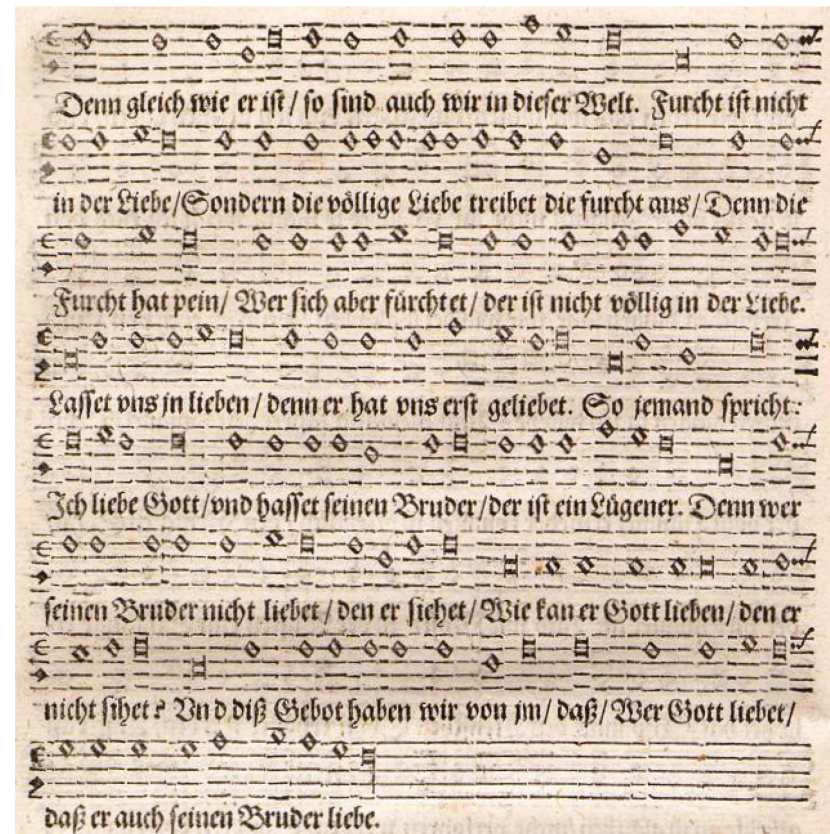 Denn gleich wie er ist / so sind auch wir in dieser Welt. Furcht ist nicht
in der Liebe/Sondern die völlige Liebe treibet die furcht aus/ Denn die
Furcht hat pein/ Wer sich aber fürchtet/ der ist nicht völlig in der Liebe.
Lasset vns jn lieben / denn er hat vns erst geliebet. So jemand spricht:
Ich liebe Gott/vnd hasset seinen Bruder/der ist ein Lügener. Denn wer
seinen Bruder nicht liebet / den er siehet/ Wie kan er Gott lieben/ den er
nicht sihet? Vnd diß Gebot haben wir von jm/ daß/ Wer Gott liebet/
daß er auch seinen Bruder liebe.